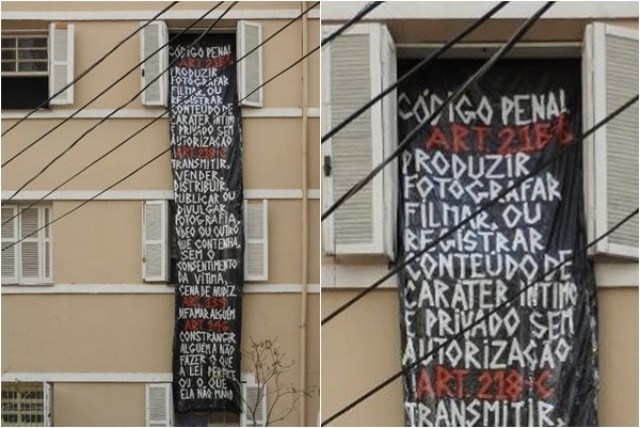 CÓDIGO PENAL
ART. 216B
PRODUZIR
FOTOGRAFAR
FILMAR, OU
REGISTRAR
CONTEÚDO DE
CARÁTER ÍNTIMO
E PRIVADO SEM
AUTORIZAÇÃO
ART. 218-C
TRANSMITIR,
VENDER,
DISTRIBUIR,
PUBLICAR OU
DIVULGAR
FOTOGRAFIA,
VÍDEO OU OUTRO
QUE CONTENHA,
SEM O
CONSENTIMENTO
DA VÍTIMA,
CENA DE NUDEZ
ART. 139
DIFAMAR ALGUÉM
ART. 146
CONSTRANGIR
ALGUÉM A NÃO
FAZER O QUE
A LEI PERMITE
OU O QUE
ELA NÃO
CÓDIGO PENAL
ART. 216B
PRODUZIR
FOTOGRAFAR
FILMAR, OU
REGISTRAR
CONTEÚDO DE
CARÁTER ÍNTIMO
E PRIVADO SEM
AUTORIZAÇÃO
ART. 218-C
TRANSMITIR,